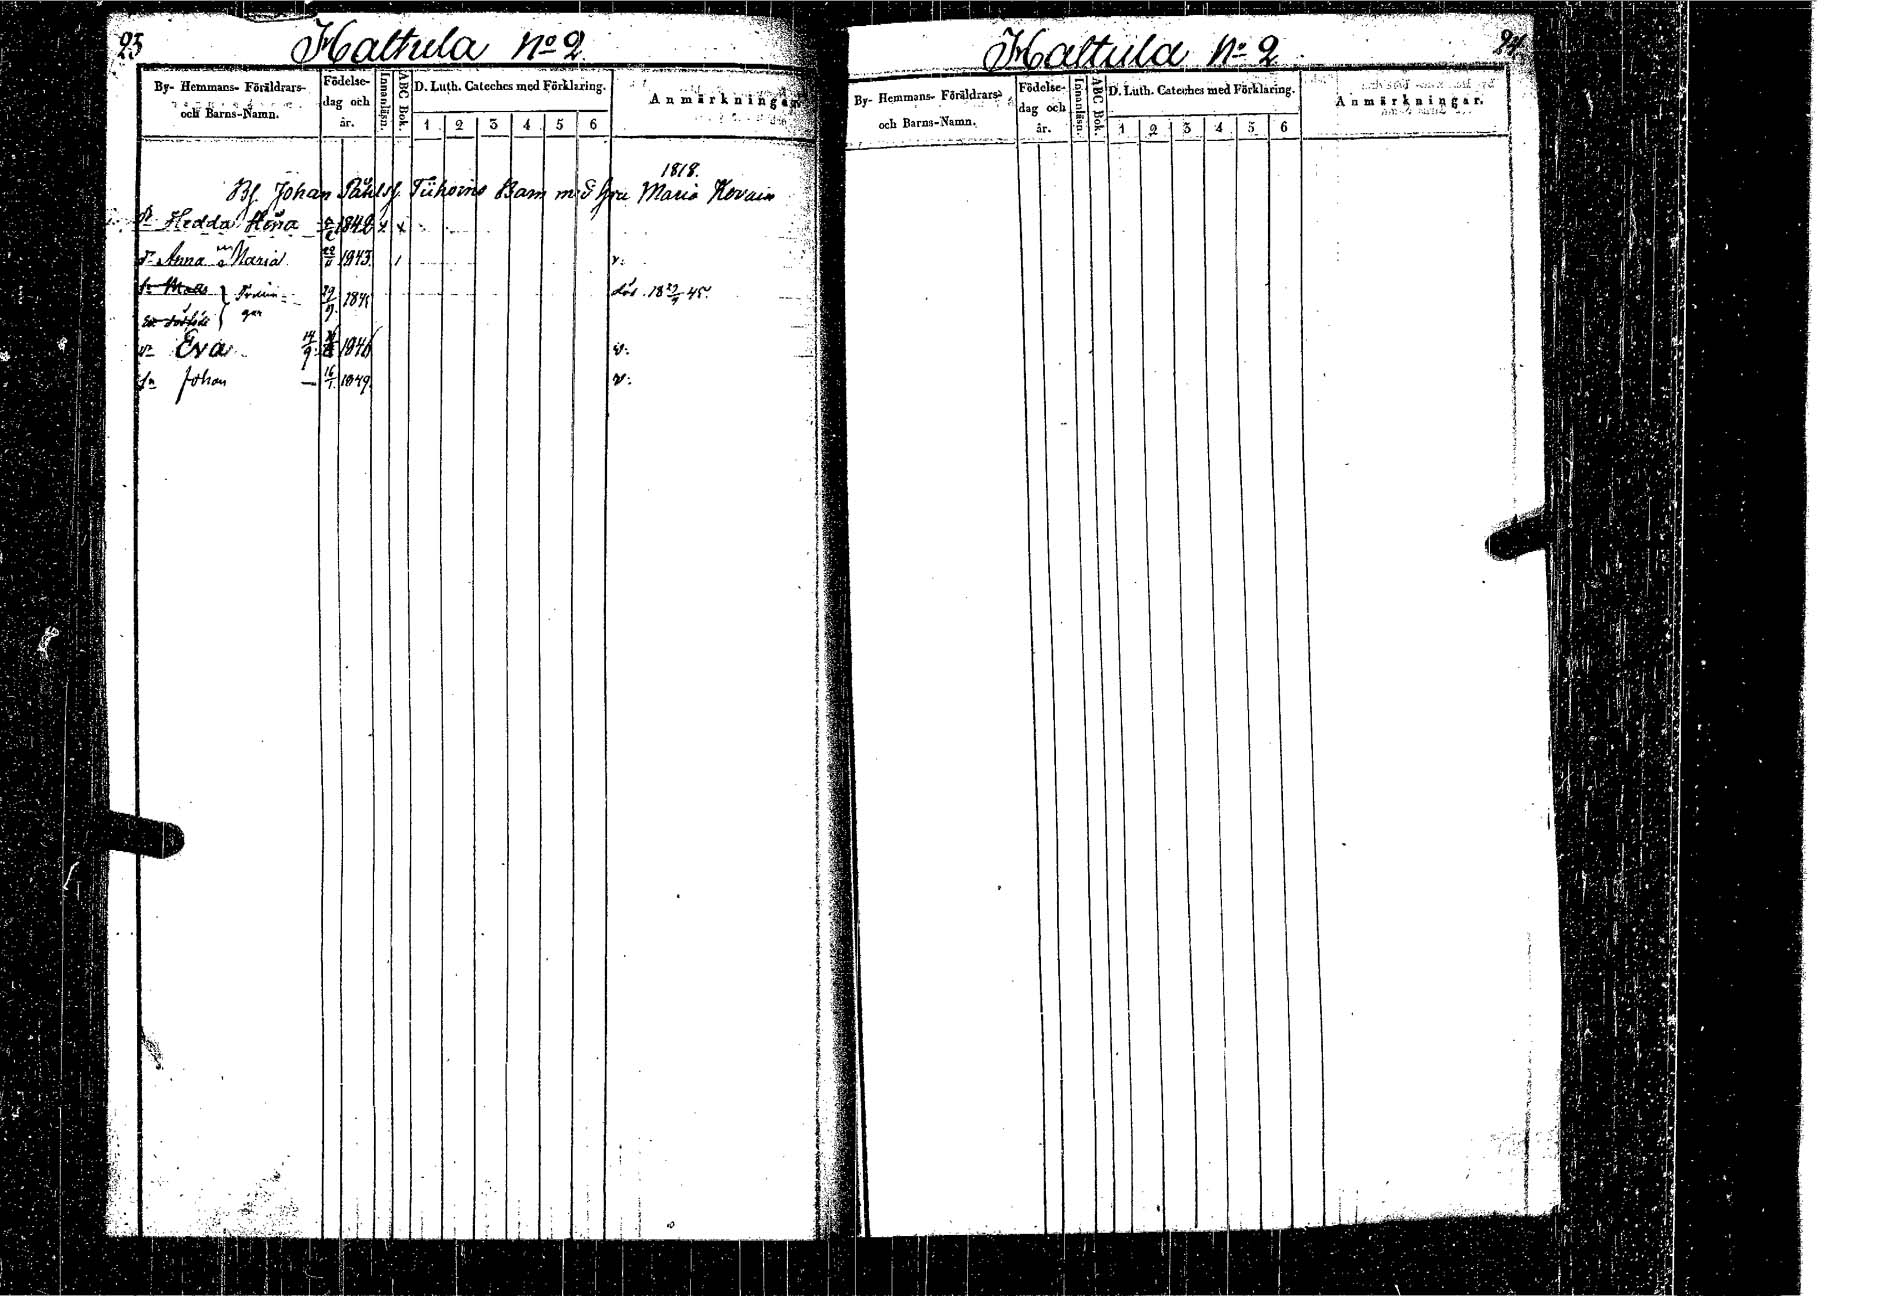 23
Haltula No 2
By- Hemmans- Föräldrars-
och Barns-Namn.
Födelse-
dag och
år.
Innanläsn.
ABC Bok.
D. Luth. Cateches med Förklaring.
1 2 3 4 5 6
Anmärkningar.
1818.
Johan Påhlsf. Tiihoins Barn m. Maria
Hedda 1842 x x
Anna Maria 1843 v.
29/9 1845 död 18 29/9 45.
Eva 14/9 1846 v.
Johan — 16/1 1849. v.
24
Haltula No 2
By- Hemmans- Föräldrars-
och Barns-Namn.
Födelse-
dag och
år.
Innanläsn.
ABC Bok.
D. Luth. Cateches med Förklaring.
1 2 3 4 5 6
Anmärkningar.